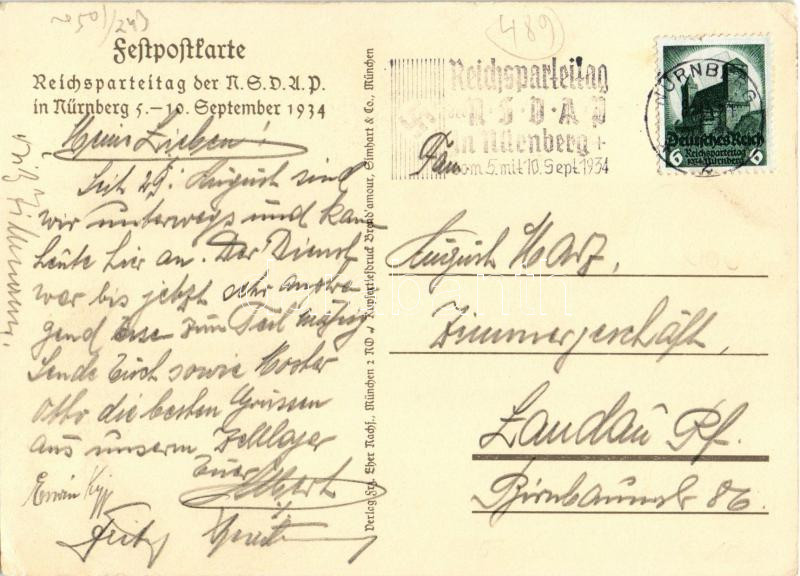 2501/243
489
Festpostkarte
Reichsparteitag der N.S.D.A.P.
in Nürnberg 5.—10. September 1934
Meine Lieben!
Seit 29. August sind
wir unterwegs und kam
heute hier an. Der Dienst
war bis jetzt sehr anstre-
gend Essen zum Teil mäßig
Sende Euch sowie
Otto die besten Grüssen
aus unserm Zeltlager
Euer
Erwin
Fritz
Verlag Frz. Eher Nachf., München 2 NO / Kupfertiefdruck Brend'amour, Simhart & Co., München
Reichsparteitag
der N·S·D·A·P
in Nürnberg
vom 5. mit 10. Sept. 1934
NÜRNBERG
Deutsches Reich
6 Reichsparteitag 6
1934 Nürnberg
Fam.
August Harz,
Zimmergeschäft,
Landau Pf.
Birnbaumstr 86.
darabanth